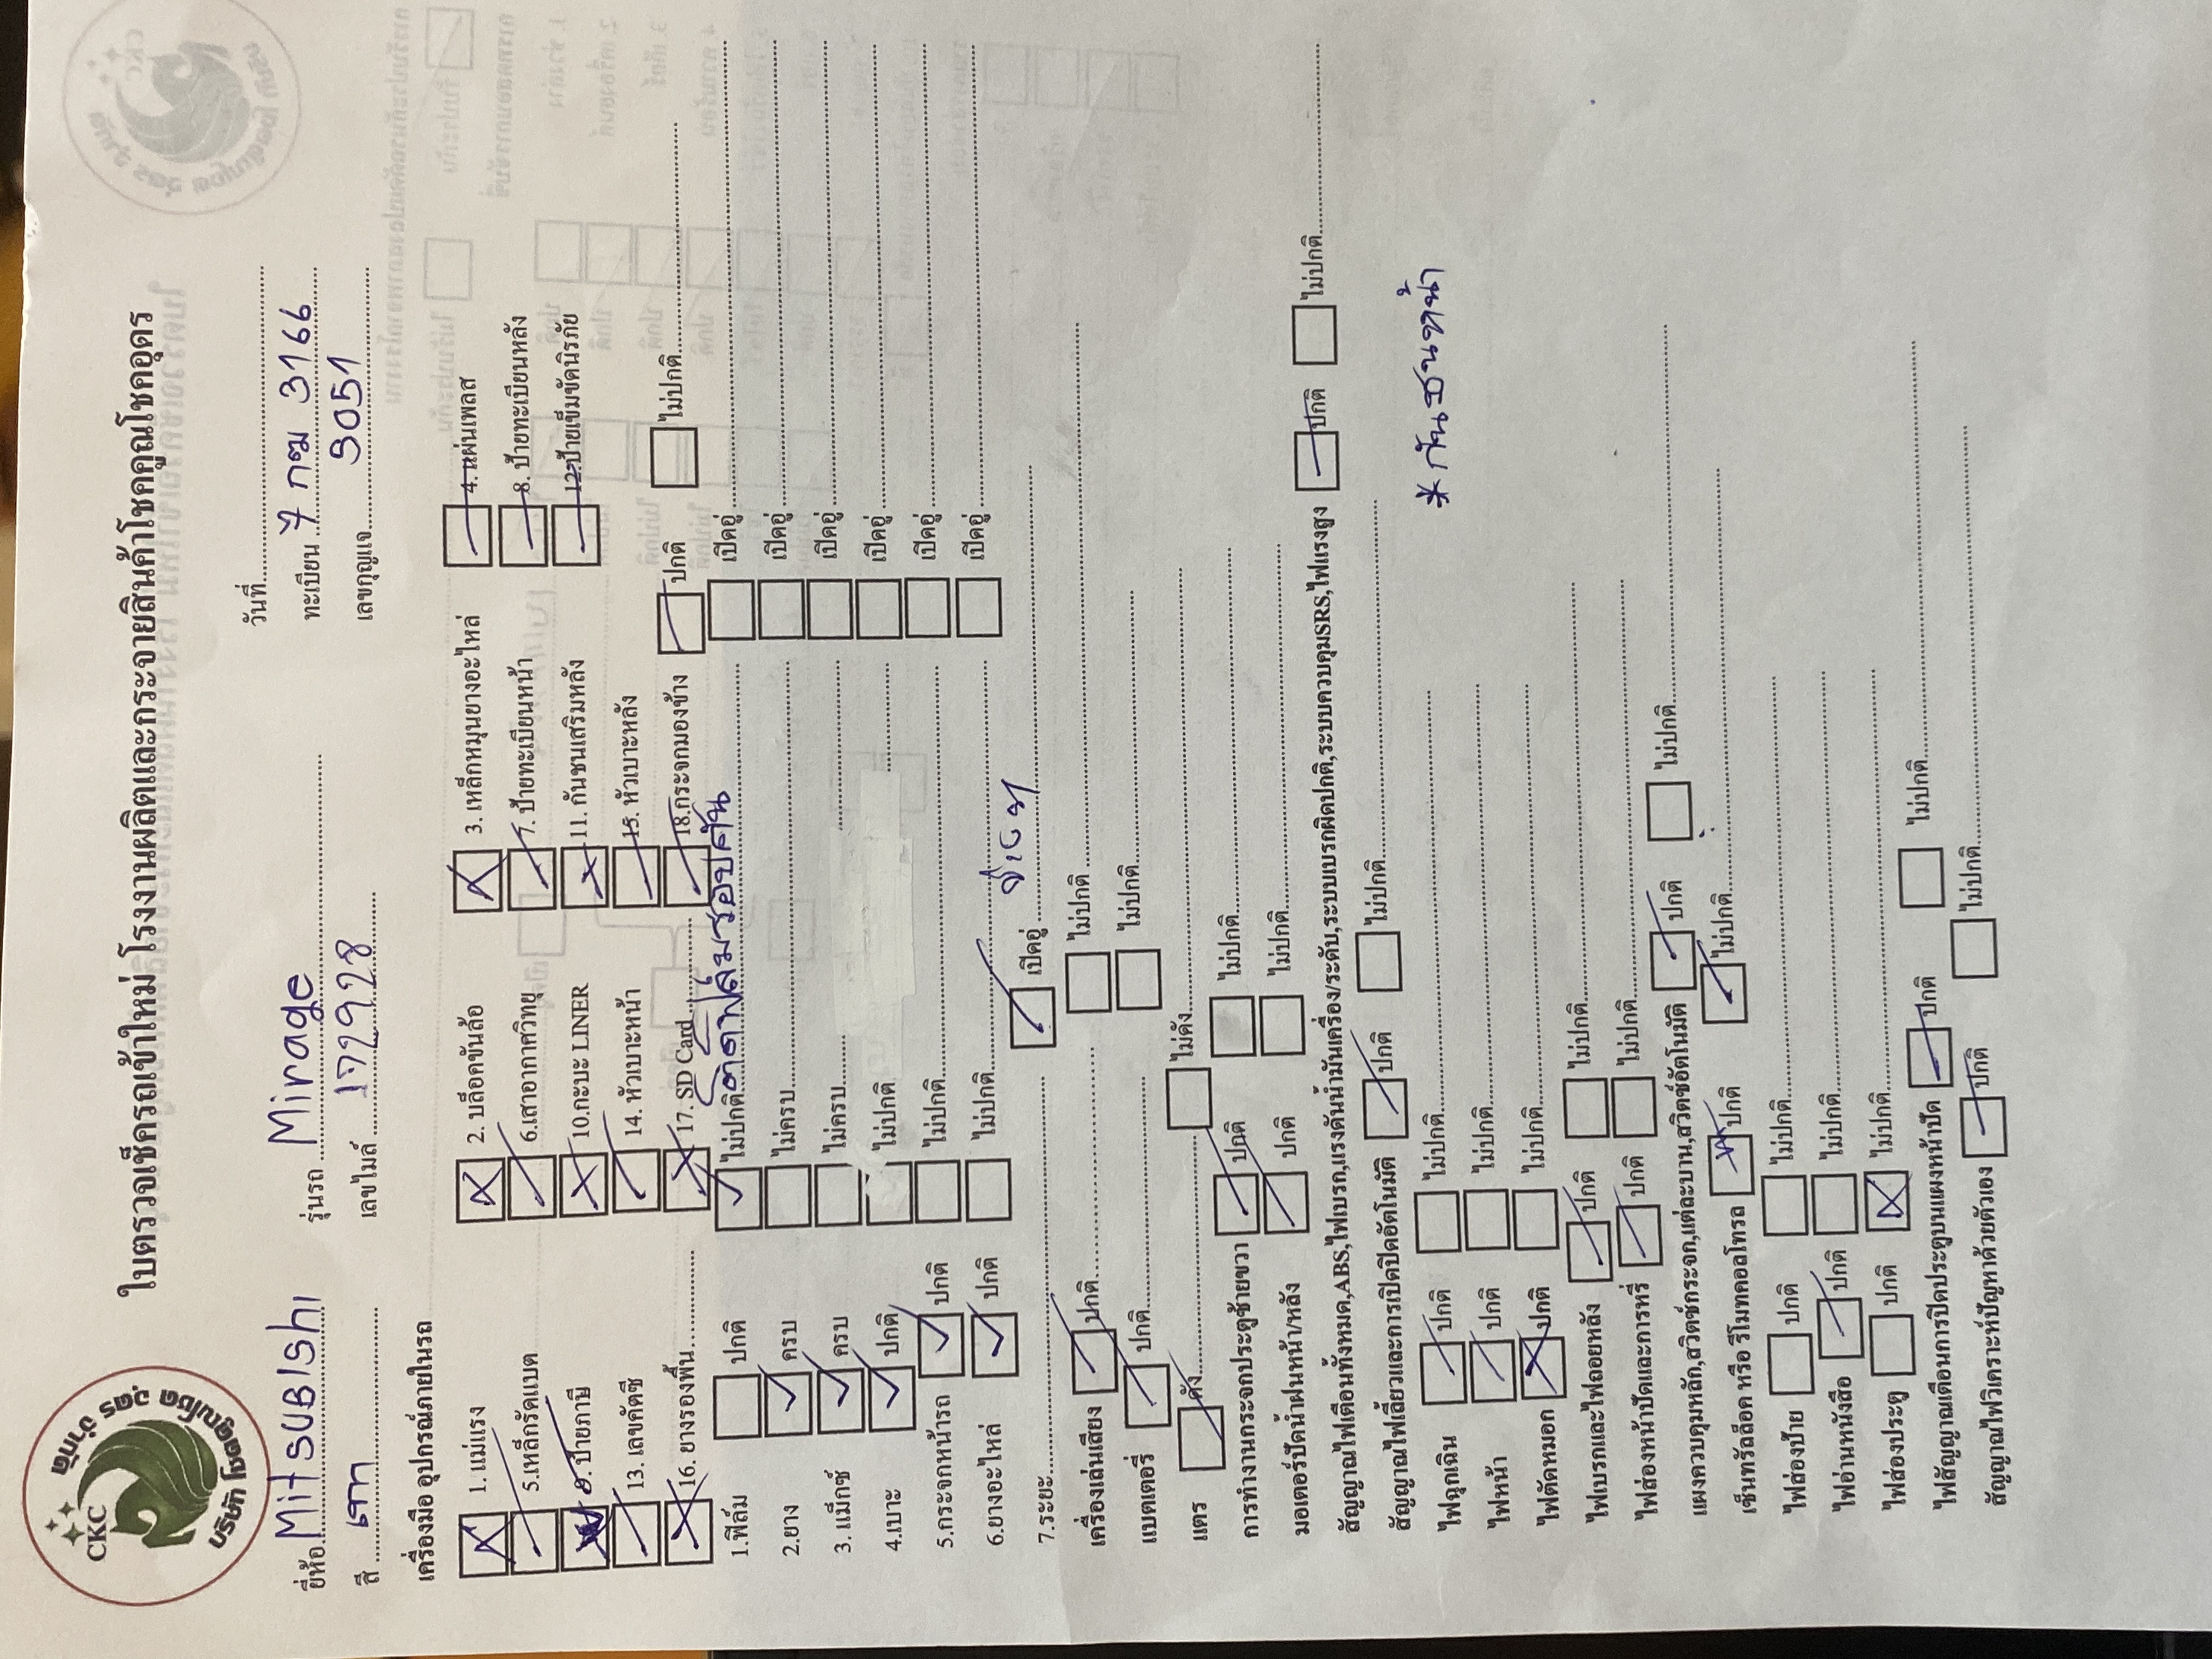 CKC
บริษัท โชคคูณโชค อุดร จำกัด
ใบตรวจเช็ครถเข้าใหม่ โรงงานผลิตและกระจายสินค้าโชคคูณโชคอุดร
วันที่
ยี่ห้อ Mitsubishi รุ่นรถ Mirage ทะเบียน 7 กฒ 3166
สี เทา เลขไมล์ 177928 เลขกุญแจ 9051
เครื่องมือ อุปกรณ์ภายในรถ
1. แม่แรง 2. บล็อคขันล้อ 3. เหล็กหมุนยางอะไหล่ 4. แผ่นเพลส
5.เหล็กกรัดแบต 6.เสาอากาศวิทยุ 7. ป้ายทะเบียนหน้า 8. ป้ายทะเบียนหลัง
9. ป้ายภาษี 10.กะบะ LINER 11. กันชนเสริมหลัง 12.ป้ายเข็มขัดนิรภัย
13. เลขคัตซี 14. หัวเบาะหน้า 15. หัวเบาะหลัง
16. ยางรองพื้น 17. SD Card 18.กระจกมองข้าง ปกติ ไม่ปกติ
1.ฟิล์ม ปกติ ไม่ปกติ ติดฟิล์มรอบคัน เปิดอู่
2.ยาง ครบ ไม่ครบ เปิดอู่
3. แม็กซ์ ครบ ไม่ครบ เปิดอู่
4.เบาะ ปกติ ไม่ปกติ เปิดอู่
5.กระจกหน้ารถ ปกติ ไม่ปกติ เปิดอู่
6.ยางอะไหล่ ปกติ ไม่ปกติ เปิดอู่
7.ระยะ เปิดอู่
เครื่องเล่นเสียง ปกติ ไม่ปกติ
แบตเตอรี่ ปกติ ไม่ปกติ
แตร ดัง ไม่ดัง
การทำงานกระจกประตูซ้ายขวา ปกติ ไม่ปกติ
มอเตอร์ปัดน้ำฝนหน้า/หลัง ปกติ ไม่ปกติ
สัญญาณไฟเตือนทั้งหมด,ABS,ไฟเบรก,แรงดันน้ำมันเครื่อง/ระดับ,ระบบเบรกผิดปกติ,ระบบควบคุมSRS,ไฟแรงสูง ปกติ ไม่ปกติ
สัญญาณไฟเลี้ยวและการเปิดปิดอัตโนมัติ ปกติ ไม่ปกติ
ไฟฉุกเฉิน ปกติ ไม่ปกติ
* กันชนหน้า
ไฟหน้า ปกติ ไม่ปกติ
ไฟตัดหมอก ปกติ ไม่ปกติ
ไฟเบรกและไฟถอยหลัง ปกติ ไม่ปกติ
ไฟส่องหน้าปัดและการหรี่ ปกติ ไม่ปกติ
แผงควบคุมหลัก,สวิตช์กระจก,แต่ละบาน,สวิตช์อัตโนมัติ ปกติ ไม่ปกติ
เซ็นทรัลล็อค หรือ รีโมทคอลโทรล ปกติ ไม่ปกติ
ไฟส่องป้าย ปกติ ไม่ปกติ
ไฟอ่านหนังสือ ปกติ ไม่ปกติ
ไฟส่องประตู ปกติ ไม่ปกติ
ไฟสัญญาณเตือนการปิดประตูบนแผงหน้าปัด ปกติ ไม่ปกติ
สัญญาณไฟวิเคราะห์ปัญหาด้วยตัวเอง ปกติ ไม่ปกติ